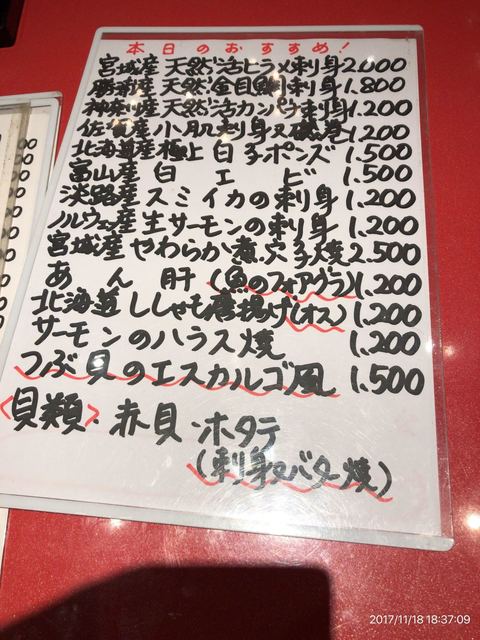 本日のおすすめ!
宮城産 天然活ヒラメ刺身 2.000
勝浦産 天然金目鯛刺身 1.800
神奈川産 天然活カンパチ刺身 1.200
佐賀産 小肌刺身又磯巻 1.200
北海道産 極上白子ポンズ 1.500
富山産 白エビ 1.500
淡路産 スミイカの刺身 1.200
ノルウェー産 生サーモンの刺身 1.200
宮城産 やわらか煮穴子焼 2.500
あん肝 (魚のフォアグラ) 1.200
北海道ししゃも唐揚げ(オス) 1.200
サーモンのハラス焼 1.200
つぶ貝のエスカルゴ風 1.500
<貝類> 赤貝・ホタテ
(刺身又バター焼)
2017/11/18 18:37:09